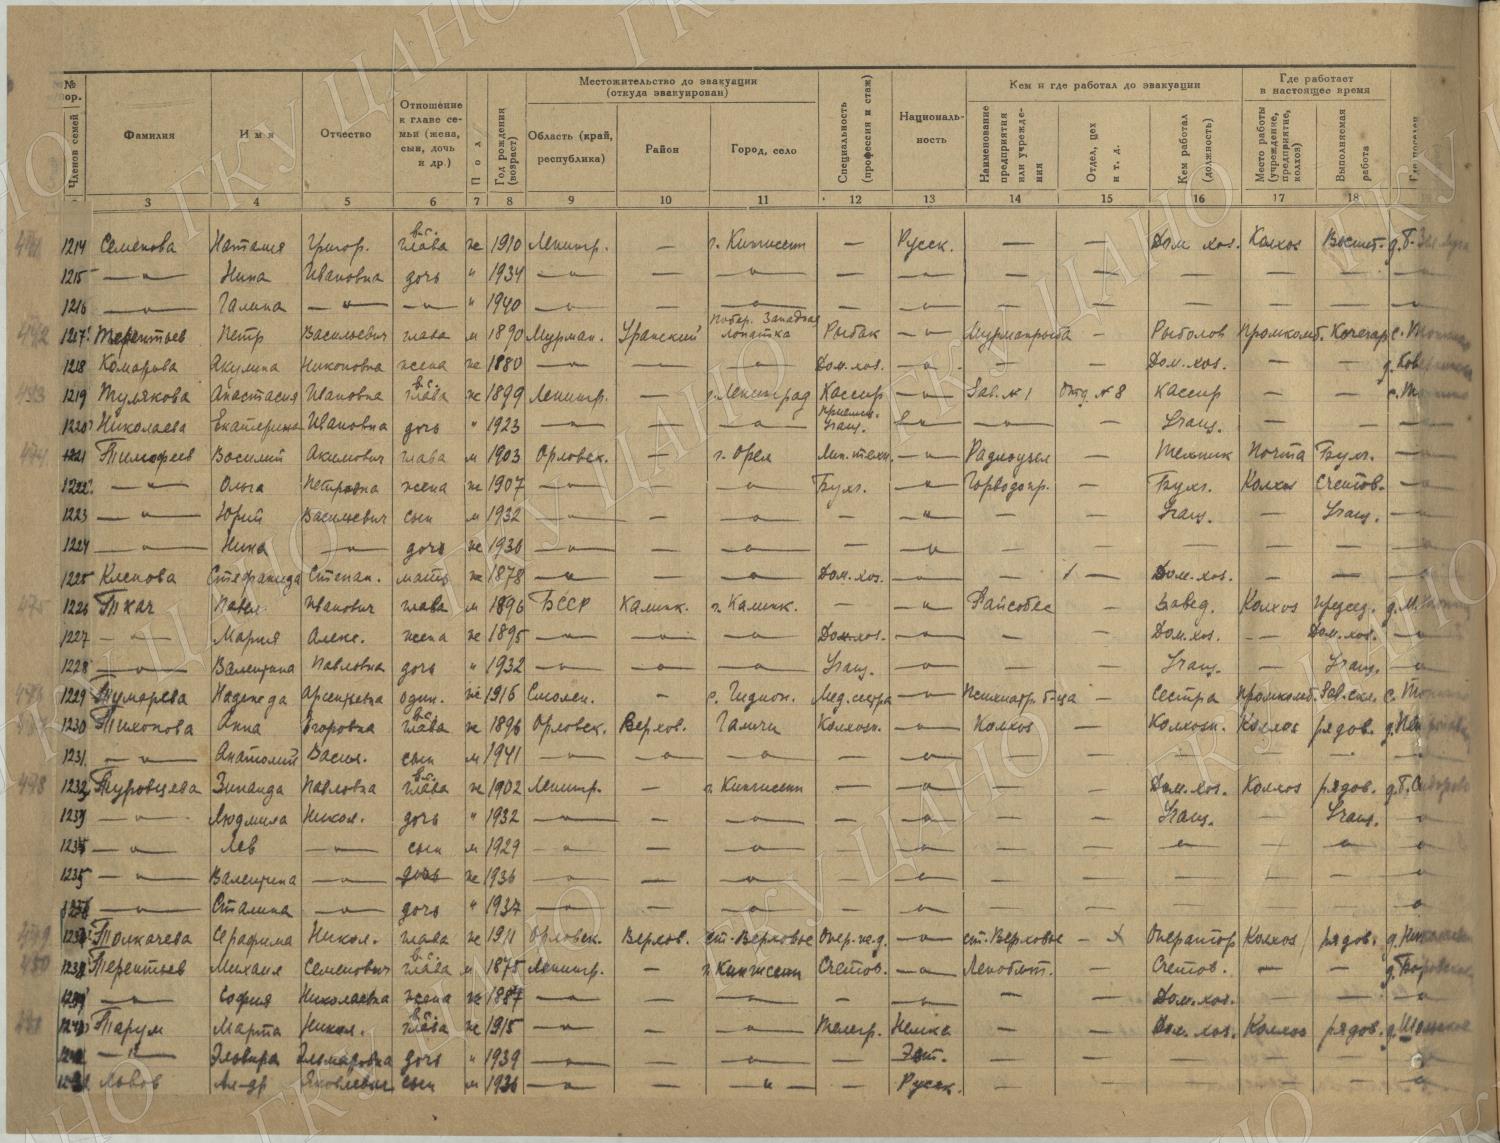 № пор.
Членов семей
Фамилия
Имя
Отчество
Отношение к главе семьи (жена, сын, дочь и др.)
Пол
Год рождения (возраст)
Местожительство до эвакуации (откуда эвакуирован)
Область (край, республика)
Район
Город, село
Специальность (профессия и стаж)
Националь-ность
Кем и где работал до эвакуации
Наименование предприятия или учрежде-ния
Отдел, цех и т. д.
Кем работал (должность)
Где работает в настоящее время
Место работы (учреждение, предприятие, колхоз)
Выполняемая работа
3 4 5 6 7 8 9 10 11 12 13 14 15 16 17 18
1214 Семенова Наталия Григор. в.с. глава ж 1910 Ленингр. — г. Кингисепп — Русск. — — Дом. хоз. Колхоз Воспит.
1215 —"— Нина Ивановна дочь " 1934 —"— — —"— — —"— — — — — —
1216 —"— Галина —"— —"— " 1940 —"— —"— — —"— — — — — —
1217 Терентьев Петр Васильевич глава м 1890 Мурман. Уранский Побер. Западная Лопатка Рыбак —"— Мурманрыба — Рыболов Промкомб. Кочегар
1218 Комарова Акулина Никоновна жена ж 1880 —"— — —"— Дом.хоз. —"— — — Дом.хоз. — —
1219 Тулякова Анастасия Ивановна в.с. глава ж 1899 Ленингр. — г. Ленинград Кассир —"— Зав. №1 Отд. №8 Кассир — —
1220 Николаева Екатерина Ивановна дочь " 1923 —"— — —"— Учащ. —"— — — Учащ. — —
1221 Тимофеев Василий Акимович глава м 1903 Орловск. — г. Орел —"— Радиоузел — Техник Почта Бухг.
1222 —"— Ольга Петровна жена ж 1907 —"— — —"— Бухг. —"— Горводопр. — Бухг. Колхоз Счетов.
1223 —"— Юрий Васильевич сын м 1932 —"— — —"— — —"— — — Учащ. — Учащ.
1224 —"— Нина —"— дочь ж 1936 —"— — —"— — —"— — —
1225 Клепова Стефанида Степан. мать ж 1878 —"— — —"— Дом.хоз. —"— — — Дом.хоз. — —
1226 Ткач Павел Иванович глава м 1896 БССР Калинк. г. Калинк. — —"— Райсобес — Завед. Колхоз Председ.
1227 —"— Мария Алекс. жена ж 1895 —"— —"— —"— Дом.хоз. —"— — — Дом.хоз. — Дом.хоз.
1228 —"— Валентина Павловна дочь " 1932 —"— —"— —"— Учащ. —"— — — Учащ. — Учащ.
1229 Тумарева Надежда Арсентьевна один. ж 1916 Смолен. — Мед.сестра —"— Психиатр. б-ца — Сестра Промкомб. Зав.скл.
1230 Тихонова Анна Егоровна в.с. глава ж 1896 Орловск. Верхов. Галичи Колхозн. —"— Колхоз — Колхозн. Колхоз рядов.
1231 —"— Анатолий Васил. сын м 1941 —"— —"— —"— — —"— — — — — —
1232 Туровцева Зинаида Павловна в.с. глава ж 1902 Ленингр. — г. Кингисепп — —"— — — Дом. хоз. Колхоз рядов.
1233 —"— Людмила Никол. дочь " 1932 —"— — —"— — —"— — — Учащ. Учащ.
—"— Лев —"— сын м 1929 —"— — —"— — —"— — — —"— — —"—
1235 —"— Валентина —"— дочь ж 1936 —"— — —"— — —"— — — — — —
—"— Сталина —"— дочь " 1937 —"— — —"— — —"— — — — — —
Толкачева Серафима Никол. глава ж 1911 Орловск. Верхов. ст. Верховье Опер. ж.д. —"— ст. Верховье — Оператор Колхоз рядов.
Терентьев Михаил Семенович в.с. глава м 1875 Ленингр. — г. Кингисепп Счетов. —"— — Счетов. — —
—"— София Николаевна жена ж 1887 —"— — —"— — —"— — — Дом.хоз. — —
Тарум Марта Никол. в.с. глава ж 1915 —"— — —"— Телегр. Немка — — Дом. хоз. Колхоз рядов.
—"— Эльвира Эльмаровна дочь " 1939 —"— — —"— — Эст. — — — — —
Львов Ал-др Яковлевич сын м 1936 —"— — —"— — Русск. — — — — —
ГКУ ЦАНО